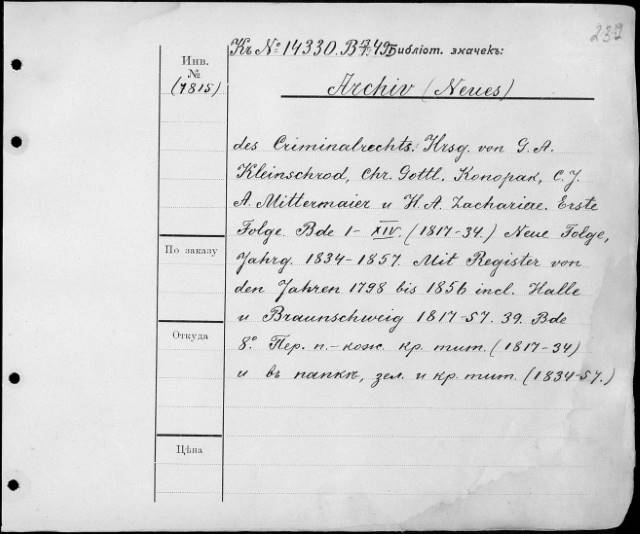 239
Къ № 14330. В 7.49. Библіот. значекъ:
Инв.
№
(7815)
Archiv (Neues)
des Criminalrechts. Hrsg. von G. A.
Kleinschrod, Chr. Gottl. Konopak, C. J.
A. Mittermaier u H. A. Zachariae. Erste
Folge Bde 1- XIV. (1817-34.) Neue Folge,
Jahrg. 1834-1857. Mit Register von
den Jahren 1798 bis 1856 incl. Halle
u Braunschweig 1817-57. 39. Bde
8.° Пер. п.-кож. кр. тит. (1817-34)
и въ папкѣ, зел. и кр. тит. (1834-57.)
По заказу
Откуда
Цѣна